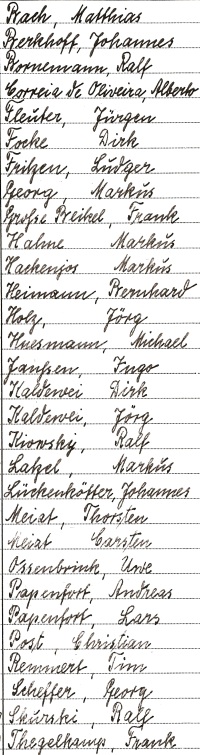 Bach, Matthias
Berkhoff, Johannes
Bornemann, Ralf
Correia de Oliveira, Alberto
Fleuter, Jürgen
Focke Dirk
Fritzen, Ludger
Georg, Markus
Große Beikel, Frank
Hahne Markus
Hackenjos Markus
Heimann, Bernhard
Holz, Jörg
Huesmann, Michael
Janßen, Ingo
Kaldewei Dirk
Kaldewei, Jörg
Kiowsky, Ralf
Latzel, Markus
Lückenkötter, Johannes
Meiat, Thorsten
Meiat Carsten
Ossenbrink, Uwe
Papenfort, Andreas
Papenfort, Lars
Post, Christian
Remmert, Tim
Scheffer, Georg
Skurski, Ralf
Thegelkamp, Frank